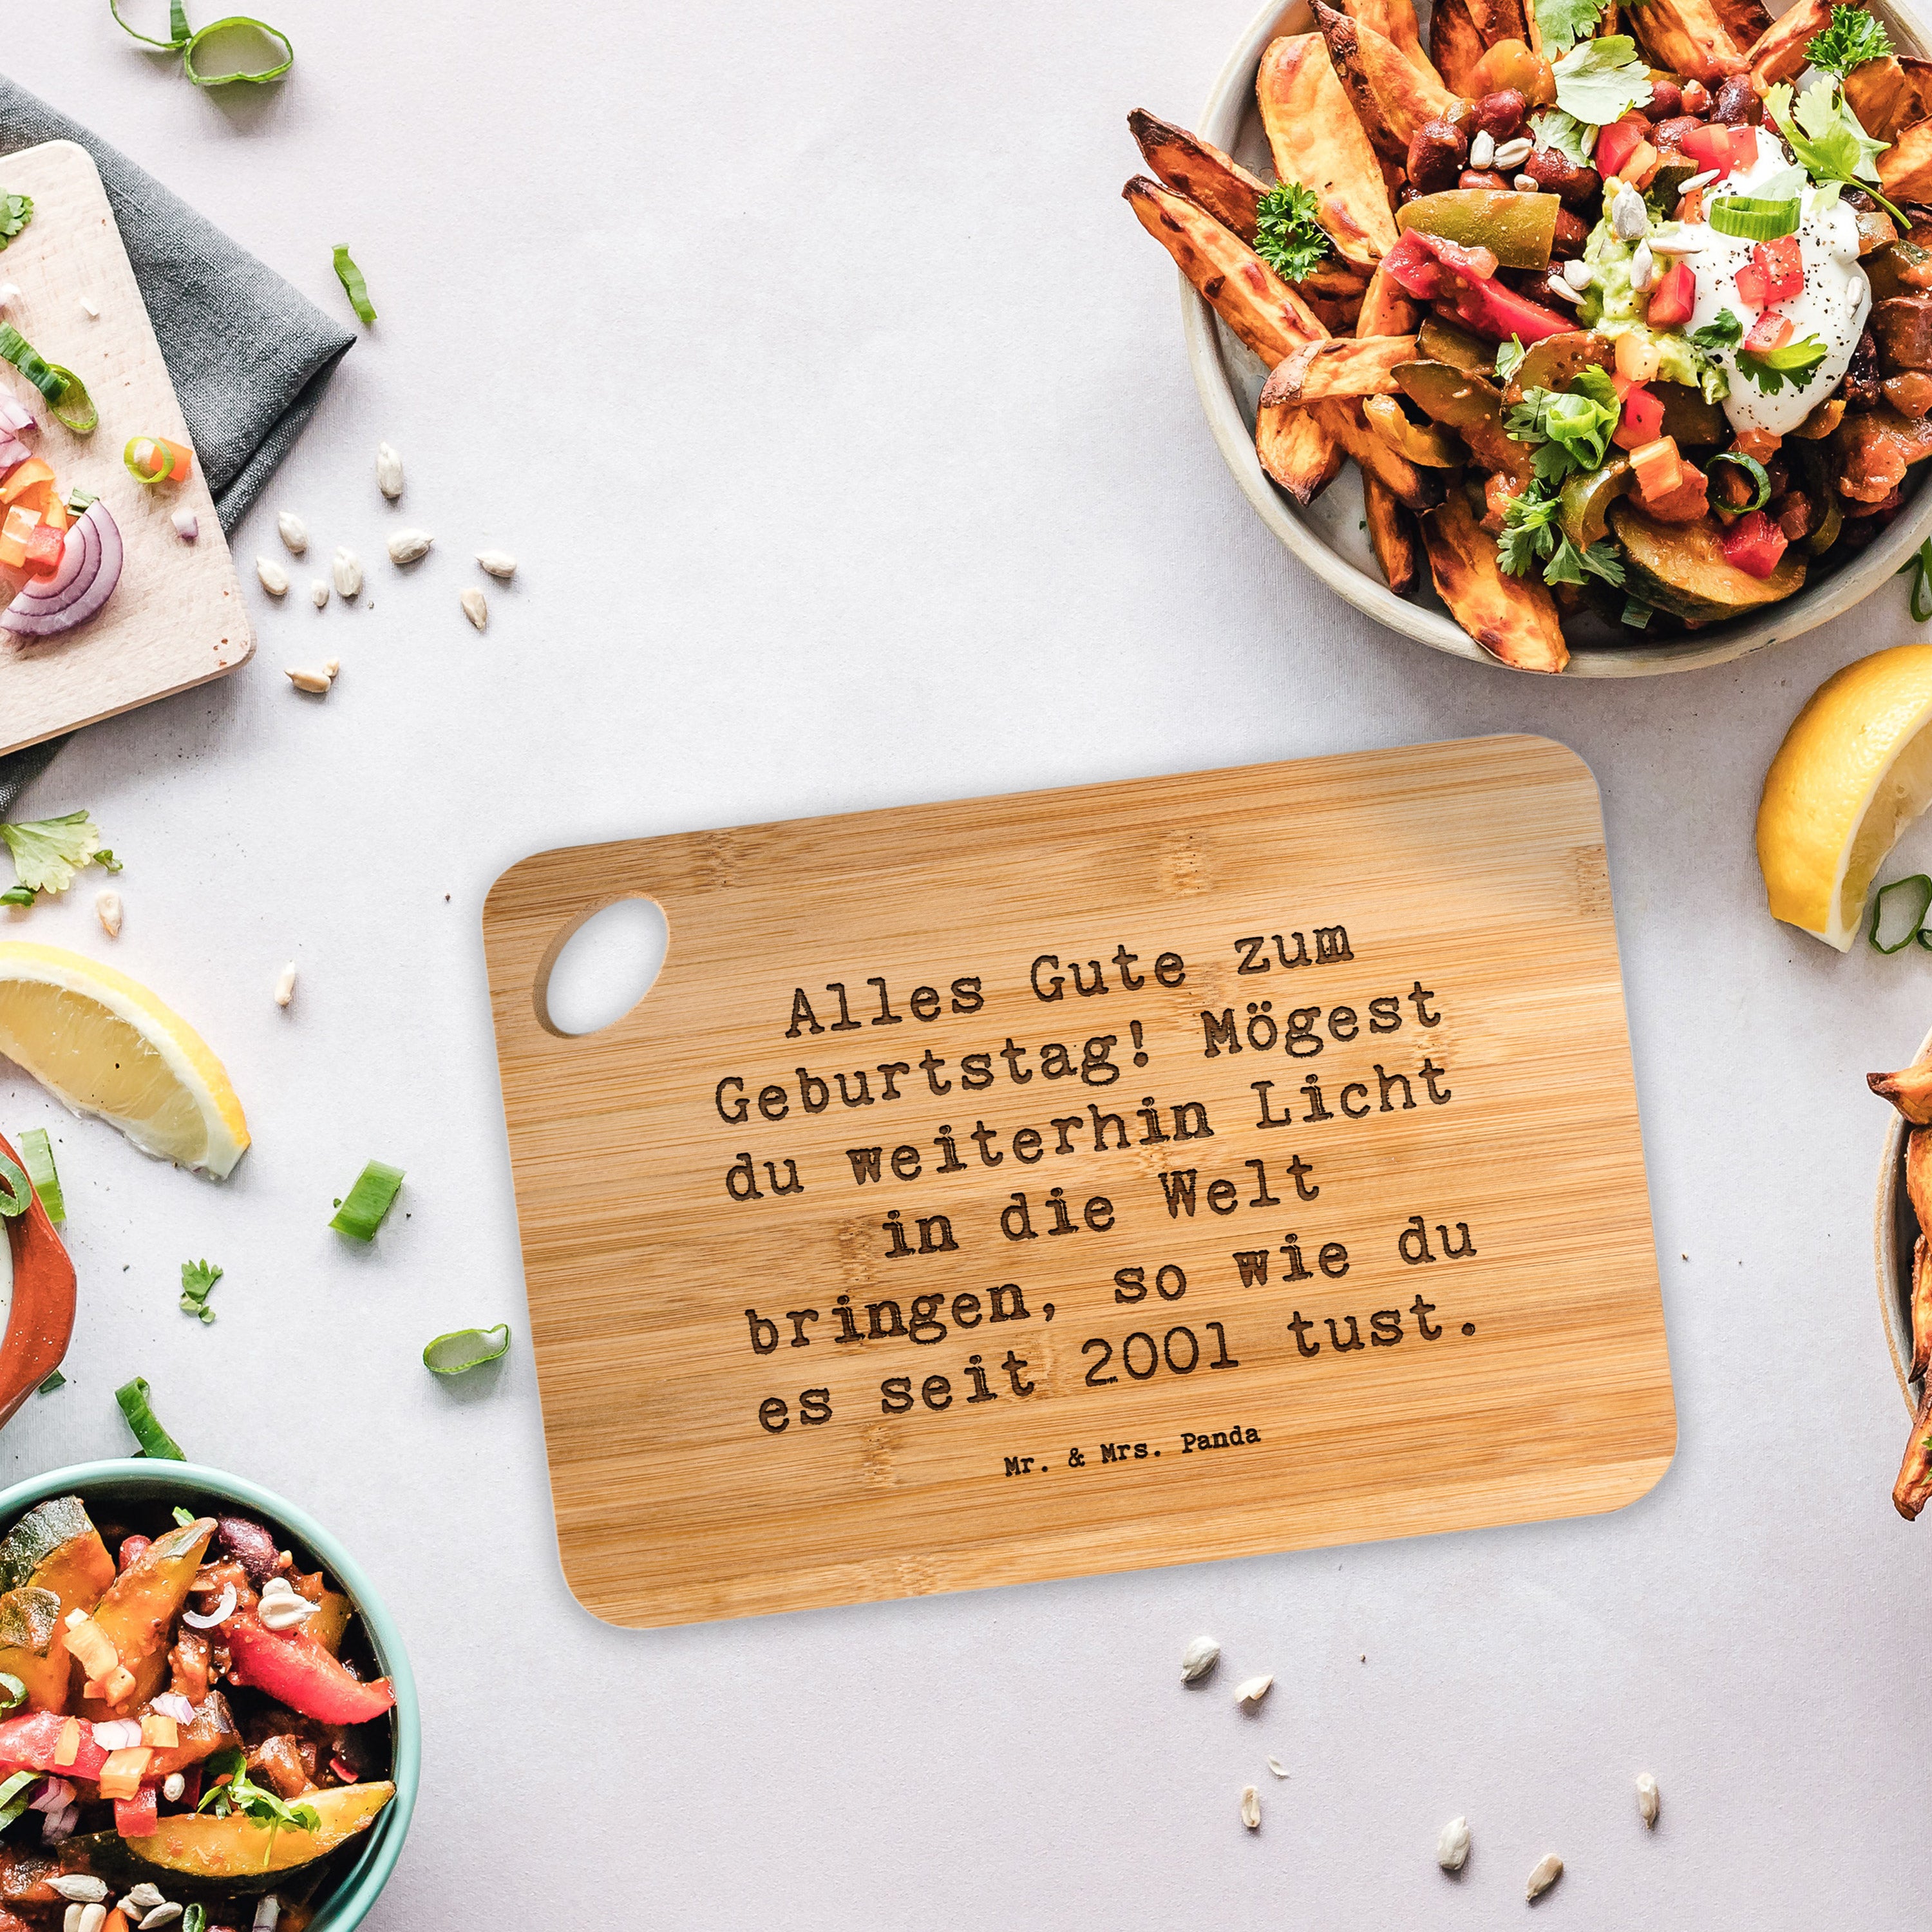 Alles Gute zum
Geburtstag! Mögest
du weiterhin Licht
in die Welt
bringen, so wie du
es seit 2001 tust.
Mr. & Mrs. Panda